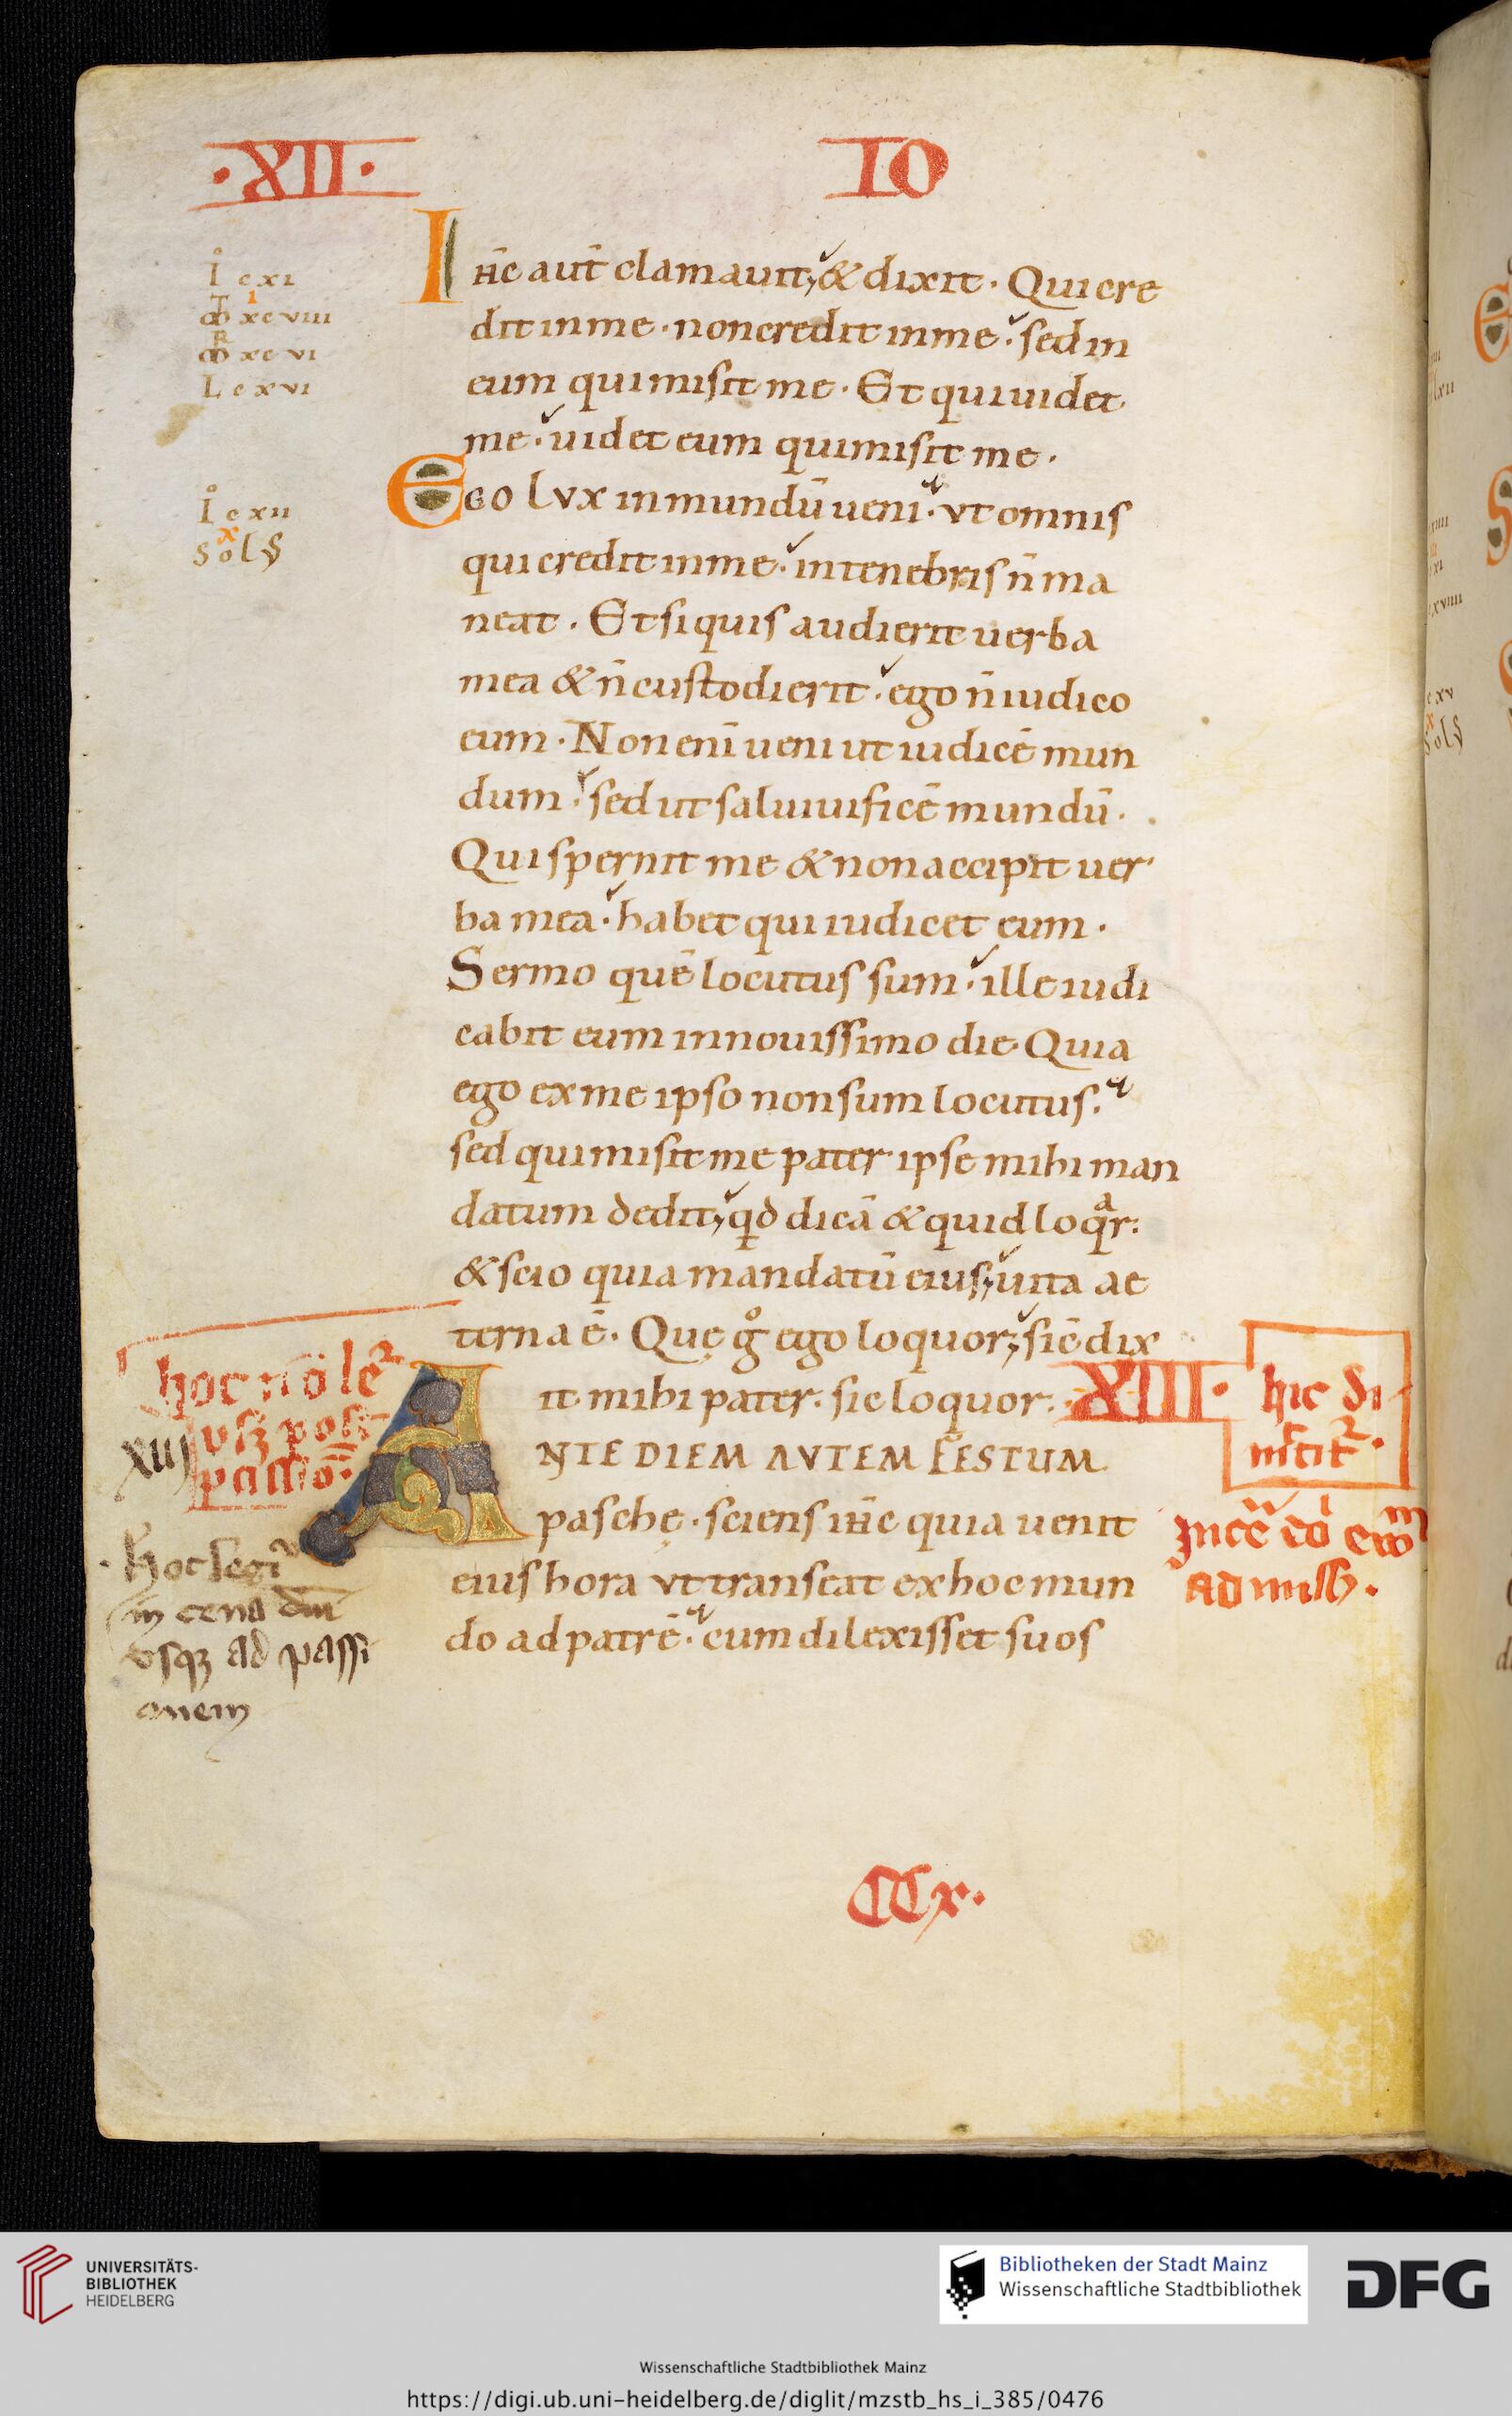 ·XII· IO
I cxi
xcviii
xcvi
L cxvi
I ħc aut̄ clamauit; & dixit · Qui cre
dit in me · non credit in me · sed in
eum qui misit me · Et qui uidet
me · uidet eum qui misit me ·
I cxii
x
Ego lvx in mundū ueni · vt omnis
qui credit in me · in tenebris n̄ ma
neat · Et si quis audierit uerba
mea & n̄ custodierit · ego n̄ iudico
eum · Non eni̅ ueni ut iudicē mun
dum · sed ut saluiuificē mundū ·
Qui spernit me & non accipit uer
ba mea · habet qui iudicet eum ·
Sermo quē locutus sum · ille iudi
cabit eum in nouissimo die · Quia
ego ex me ipso non sum locutus ·
sed qui misit me pater ipse mihi man
datum dedit; qd dicā & quid loqͣr:
& scio quia mandatū eius; uita ae
terna ē · Quę gͦ ego loquor; sic̄ dix
it mihi pater · sic loquor:
·XIII·
hoc nō le
usqꝫ post
passiō·
xiij
hic di
ANTE DIEM AVTEM FESTUM
paschę · sciens iħc quia uenit
eius hora vt transeat ex hoc mun
do ad patrē · cum dilexisset suos
Hoc
in cena dni̅
vsqꝫ ad passi
onem
CCx·
UNIVERSITÄTS-
BIBLIOTHEK
HEIDELBERG
Bibliotheken der Stadt Mainz
Wissenschaftliche Stadtbibliothek
DFG
Wissenschaftliche Stadtbibliothek Mainz
https://digi.ub.uni-heidelberg.de/diglit/mzstb_hs_i_385/0476